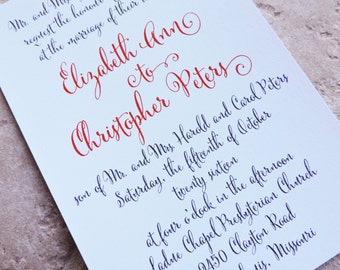 Mr. and Mrs.
request the honour
at the marriage of their
Elizabeth Ann
to
Christopher Peters
son of Mr. and Mrs. Harold and Carol Peters
Saturday, the fifteenth of October
twenty sixteen
at four o'clock in the afternoon
Ladue Chapel Presbyterian Church
9450 Clayton Road
Missouri